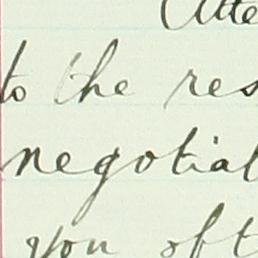 (Atte
to the res
negotial
you oft